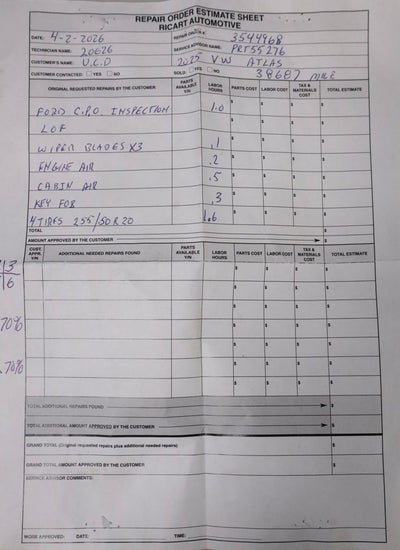 REPAIR ORDER ESTIMATE SHEET
RICART AUTOMOTIVE
DATE: 4-2-2026 REPAIR ORDER #: 3544468
TECHNICIAN NAME: 20626 SERVICE ADVISOR NAME: PRT55276
CUSTOMER'S NAME: U.C.D 2025 VW ATLAS
CUSTOMER CONTACTED: YES NO SOLD: YES NO 38687 MILE
ORIGINAL REQUESTED REPAIRS BY THE CUSTOMER PARTS AVAILABLE Y/N LABOR HOURS PARTS COST LABOR COST TAX & MATERIALS COST TOTAL ESTIMATE
FORD C.P.O INSPECTION 1.0 $ $ $ $
LOF $ $ $ $
WIPER BLADES X3 .1 $ $ $ $
ENGINE AIR .2 $ $ $ $
CABIN AIR .5 $ $ $ $
KEY FOB .3 $ $ $ $
4 TIRES 255/50 R20 1.6 $ $ $ $
TOTAL $
AMOUNT APPROVED BY THE CUSTOMER $
CUST. APPR. Y/N ADDITIONAL NEEDED REPAIRS FOUND PARTS AVAILABLE Y/N LABOR HOURS PARTS COST LABOR COST TAX & MATERIALS COST TOTAL ESTIMATE
13 $ $ $ $
16 $ $ $ $
$ $ $ $
70% $ $ $ $
$ $ $ $
70% $ $ $ $
$ $ $ $
TOTAL ADDITIONAL REPAIRS FOUND $
TOTAL ADDITIONAL AMOUNT APPROVED BY THE CUSTOMER $
GRAND TOTAL (Original requested repairs plus additional needed repairs) $
GRAND TOTAL AMOUNT APPROVED BY THE CUSTOMER $
SERVICE ADVISOR COMMENTS:
WORK APPROVED: DATE: TIME: